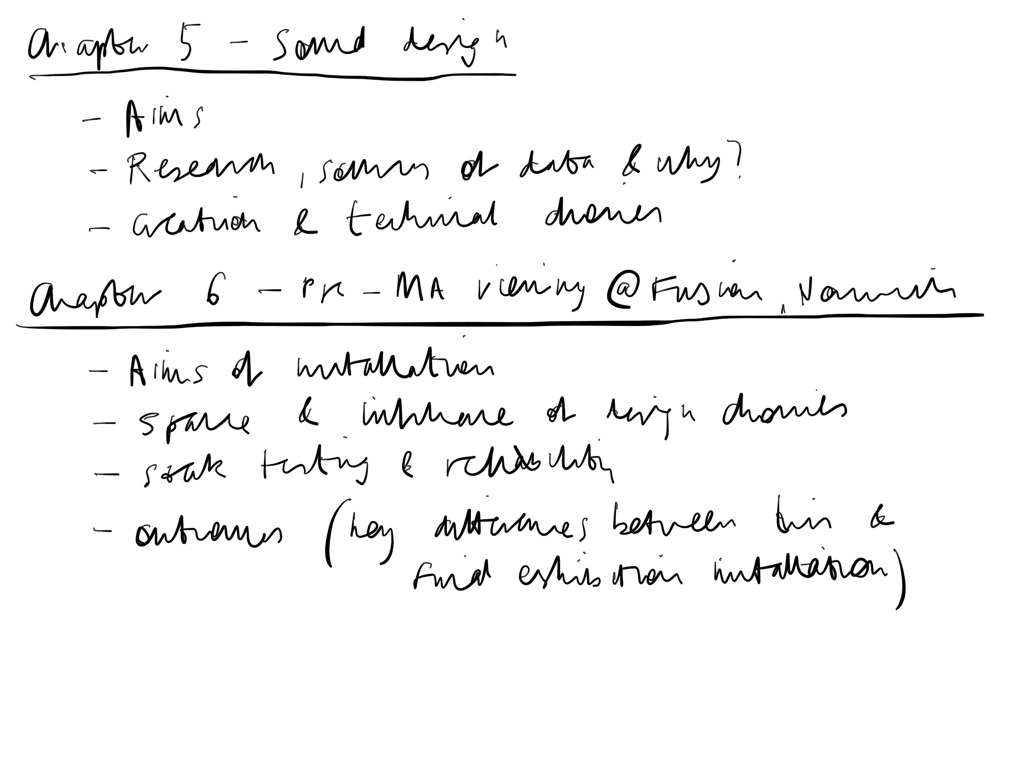 Chapter 5 - Sound design
- Aims
- Research, sources of data & why?
- creation & technical choices
Chapter 6 - Pre-MA viewing @ Fusion, Norwich
- Aims of installation
- space & influence of design choices
- soak testing & reliability
- outcomes (key differences between this &
final exhibition installation)